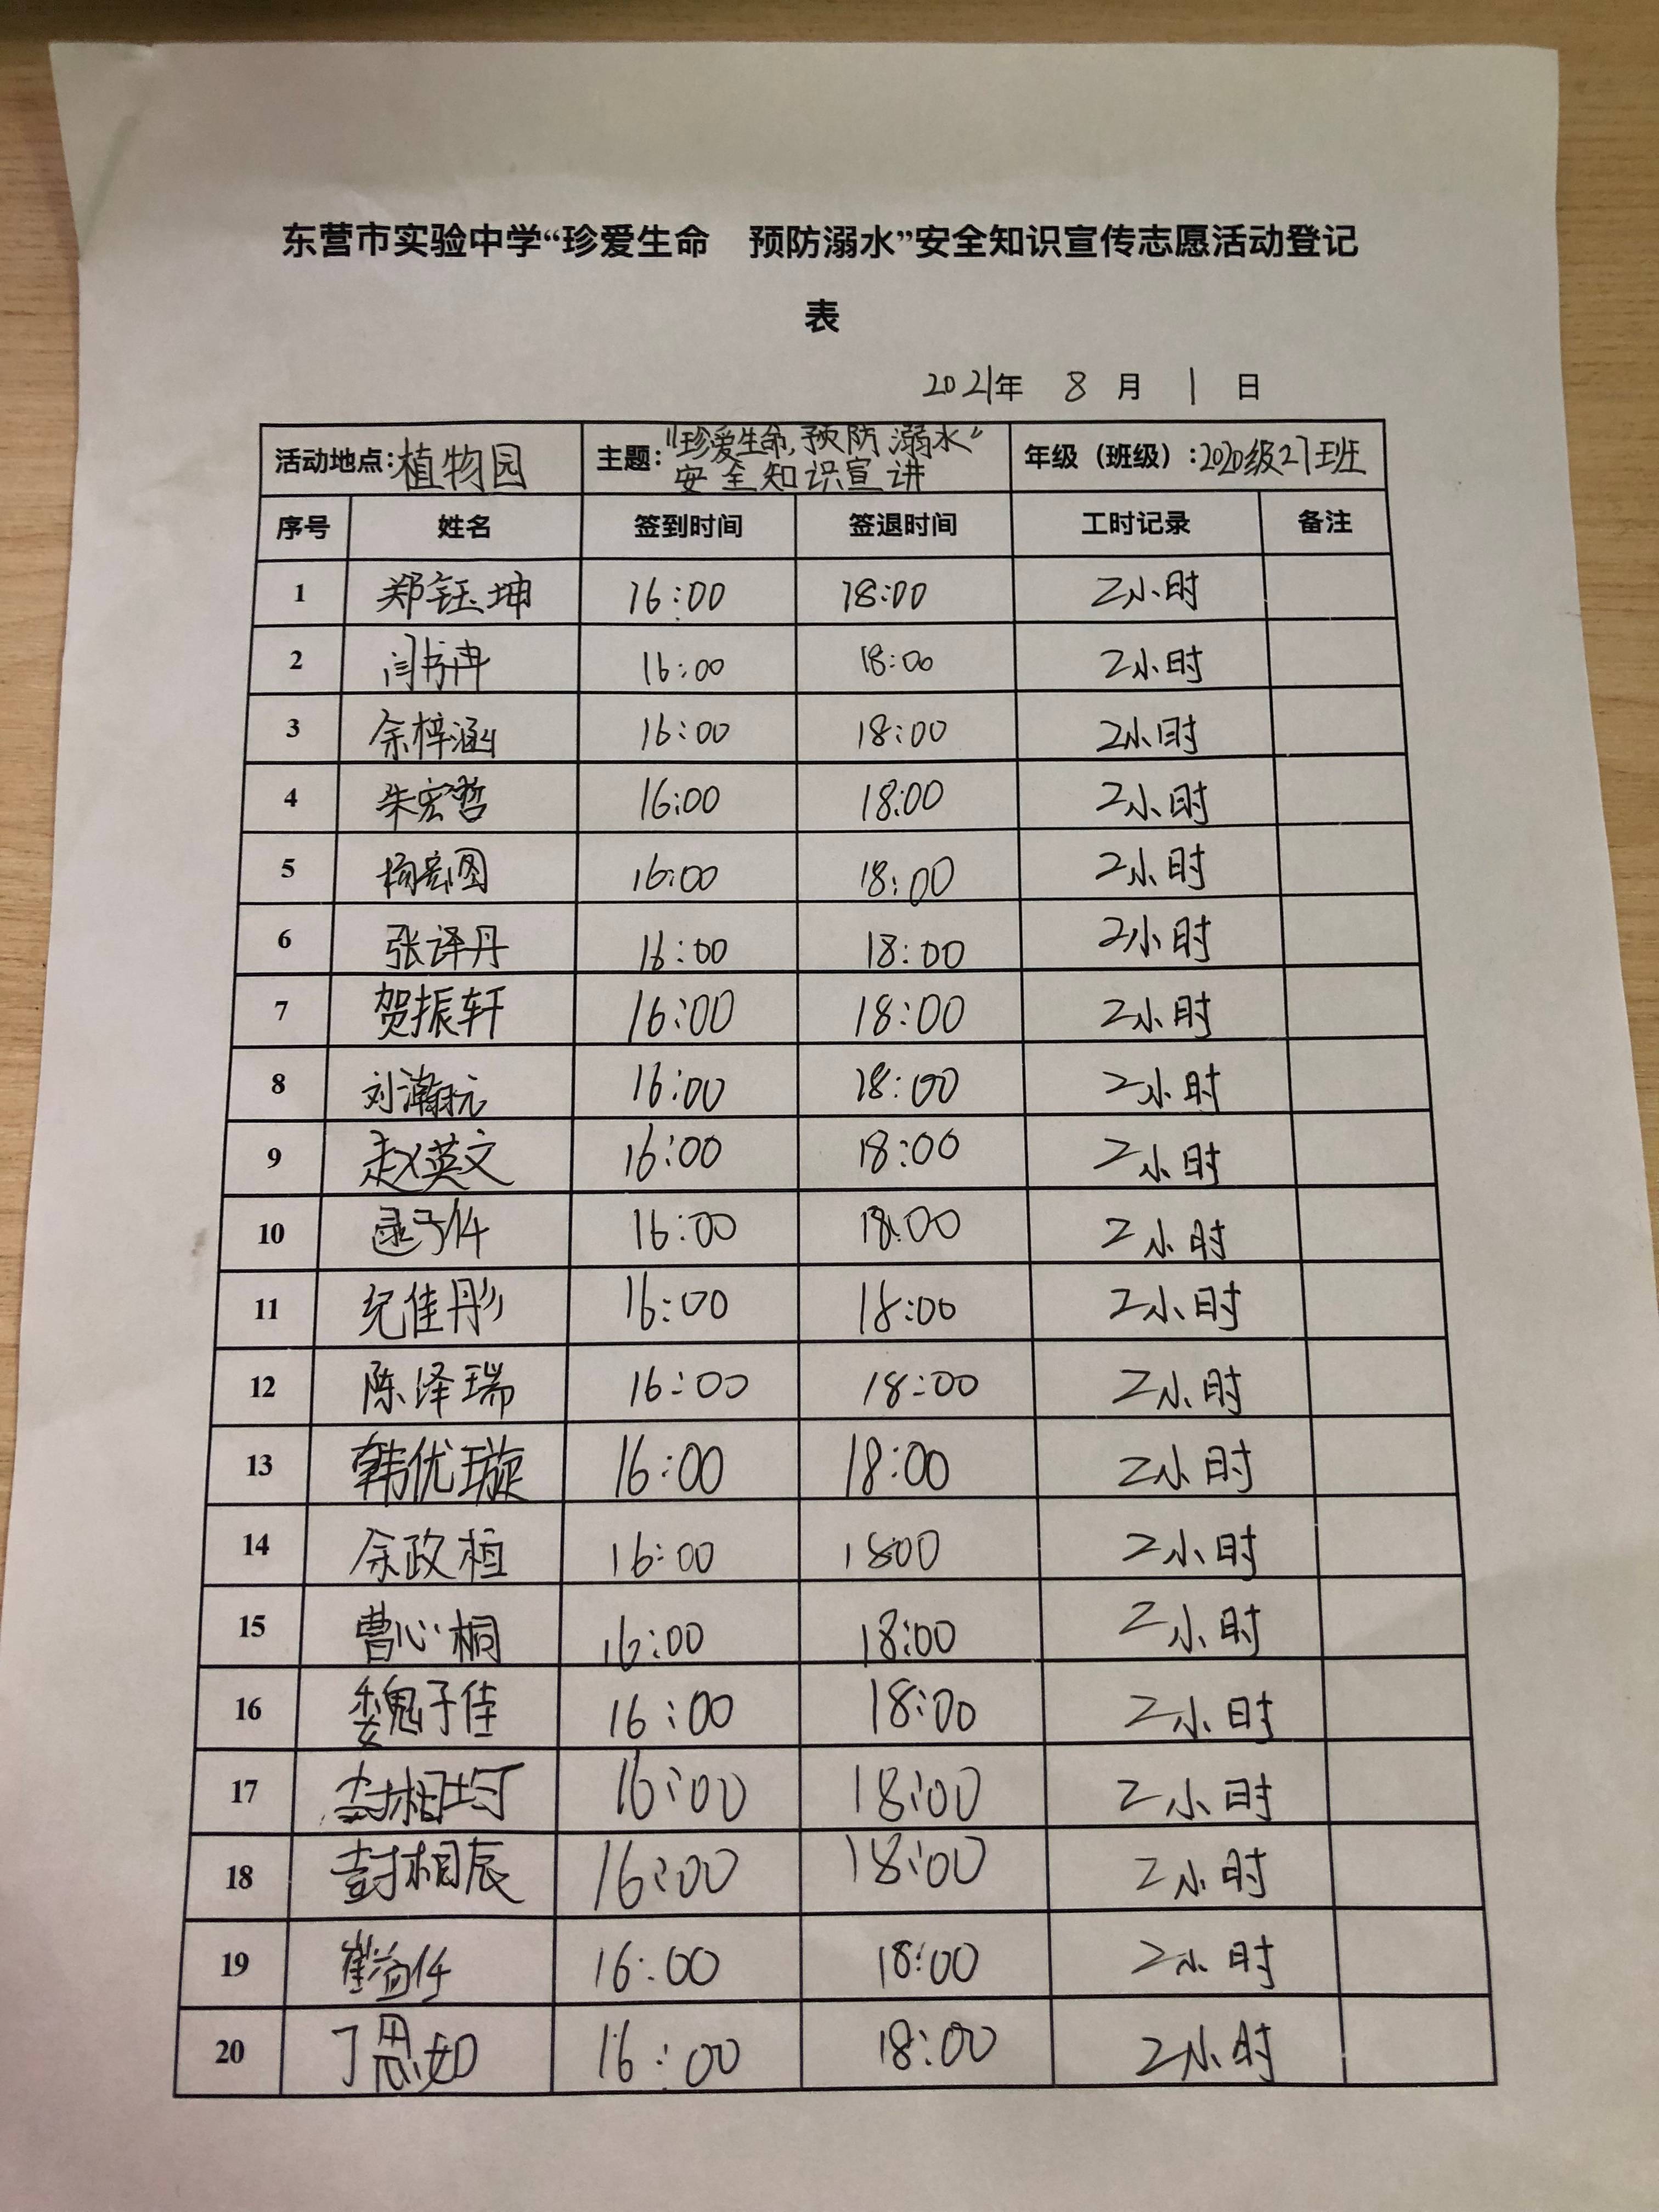 东营市实验中学“珍爱生命　预防溺水”安全知识宣传志愿活动登记
表
2021年 8 月 1 日
活动地点:植物园 主题:“珍爱生命,预防溺水”安全知识宣讲 年级（班级）:2020级27班
序号 姓名 签到时间 签退时间 工时记录 备注
1 郑钰坤 16:00 18:00 2小时
2 闫书冉 16:00 18:00 2小时
3 余梓涵 16:00 18:00 2小时
4 朱宏哲 16:00 18:00 2小时
5 杨宏图 16:00 18:00 2小时
6 张译丹 16:00 18:00 2小时
7 贺振轩 16:00 18:00 2小时
8 刘瀚 16:00 18:00 2小时
9 赵英文 16:00 18:00 2小时
10 逯子仟 16:00 18:00 2小时
11 纪佳彤 16:00 18:00 2小时
12 陈泽瑞 16:00 18:00 2小时
13 韩优璇 16:00 18:00 2小时
14 余政桓 16:00 1800 2小时
15 曹心桐 16:00 18:00 2小时
16 魏子佳 16:00 18:00 2小时
17 相均 16:00 18:00 2小时
18 相辰 16:00 18:00 2小时
19 崔益仟 16:00 18:00 2小时
20 丁思如 16:00 18:00 2小时